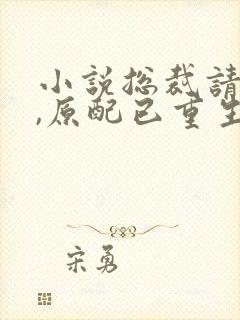 小說總裁請
,原配已重生
宋勇